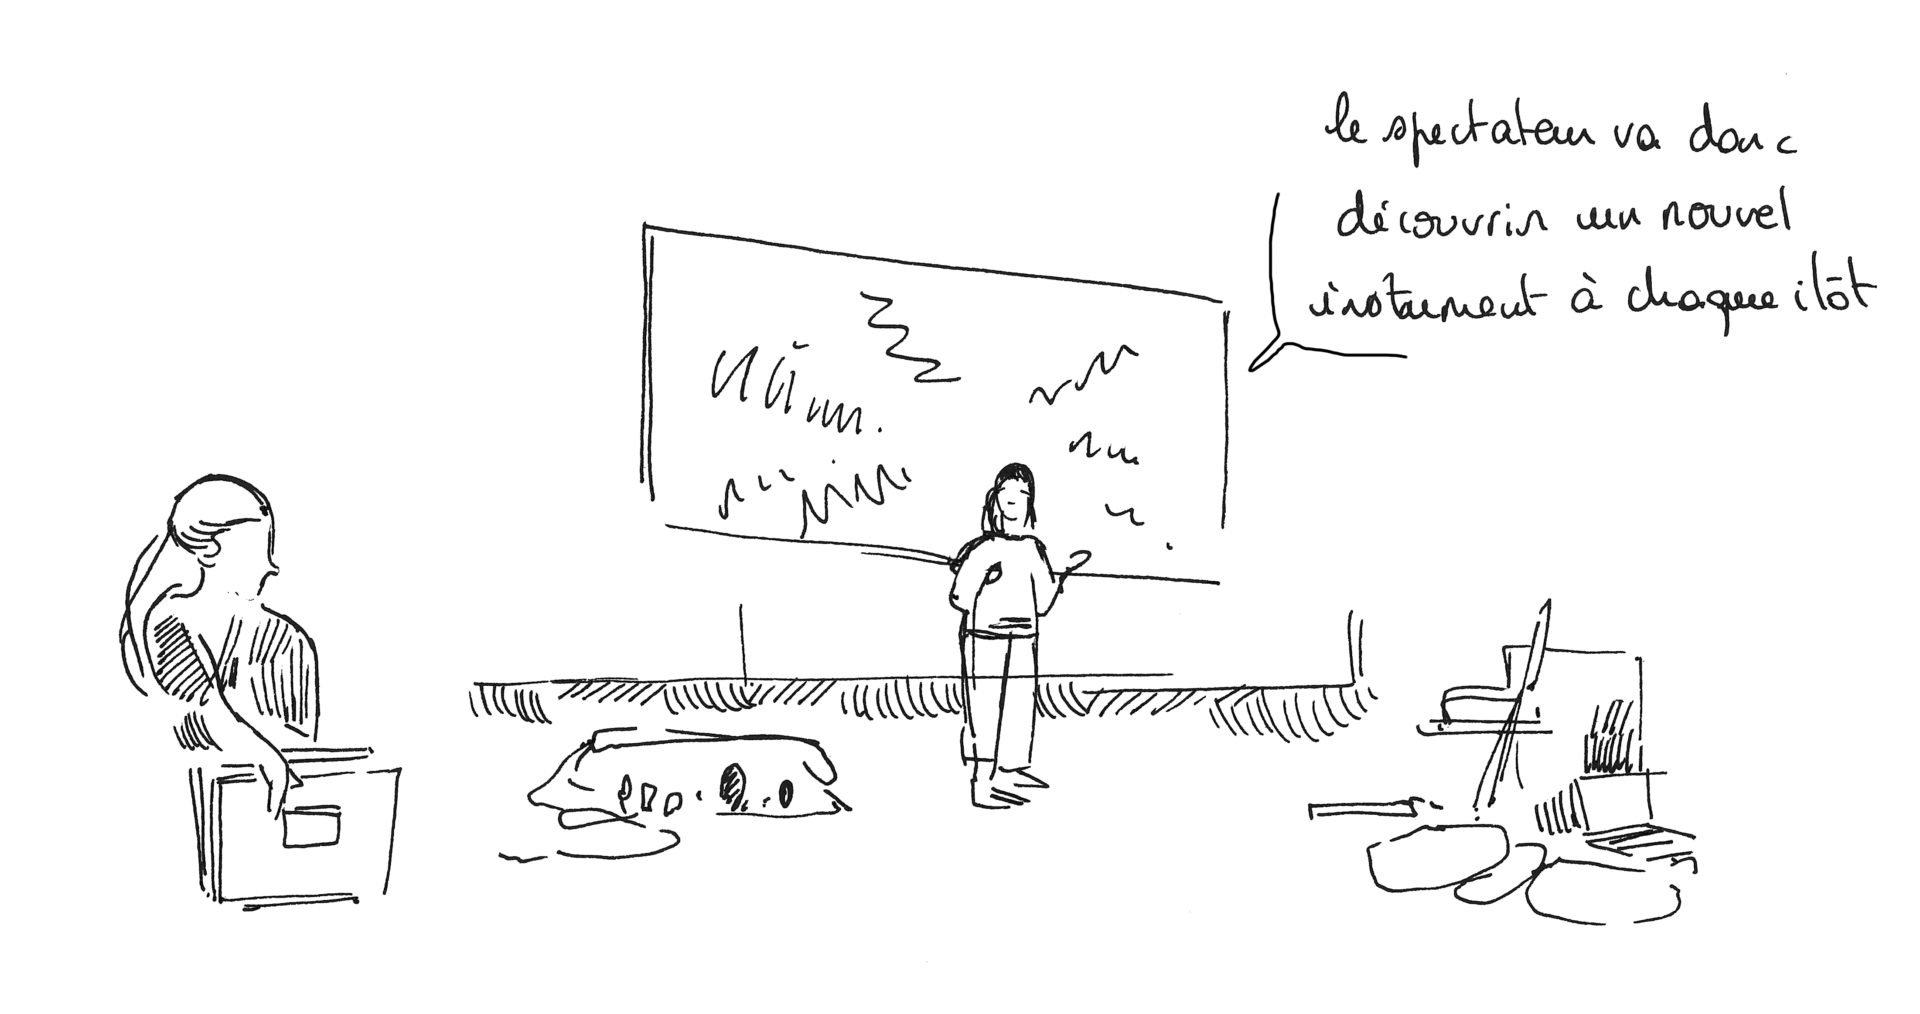 le spectateur va donc
découvrir un nouvel
instrument à chaque ilôt